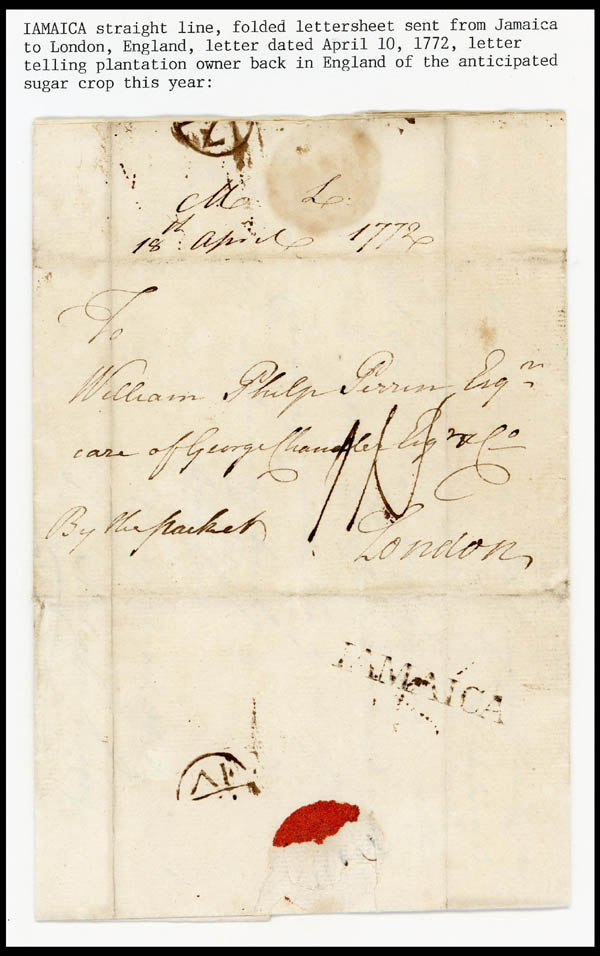 IAMAICA straight line, folded lettersheet sent from Jamaica
to London, England, letter dated April 10, 1772, letter
telling plantation owner back in England of the anticipated
sugar crop this year:
17
M L
18th April 1772
To
William Philp Perrin Esqr
care of George Chandler Esqr & Co
By the packet
London
IAMAICA